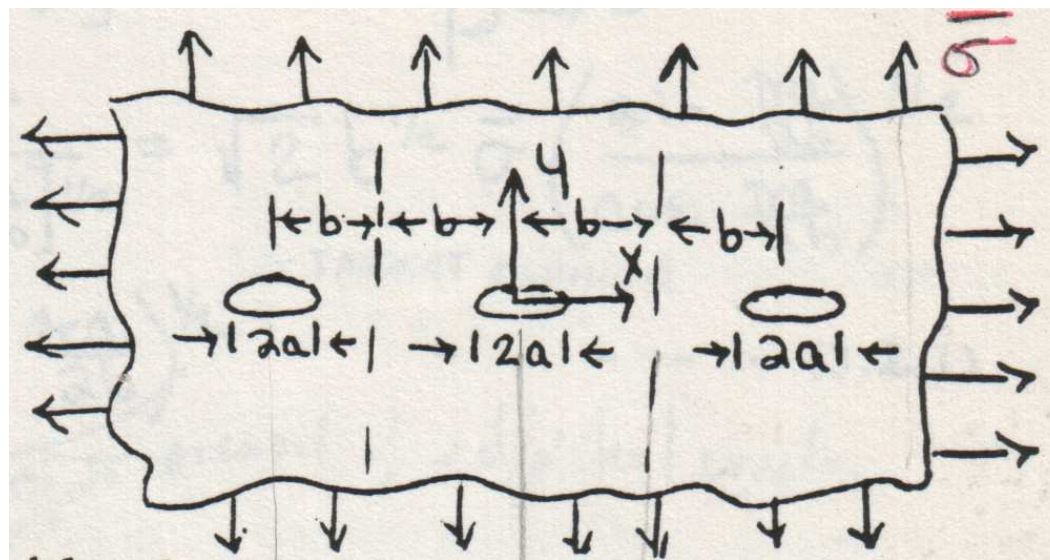 σ
y
b b b b
x
2a 2a 2a